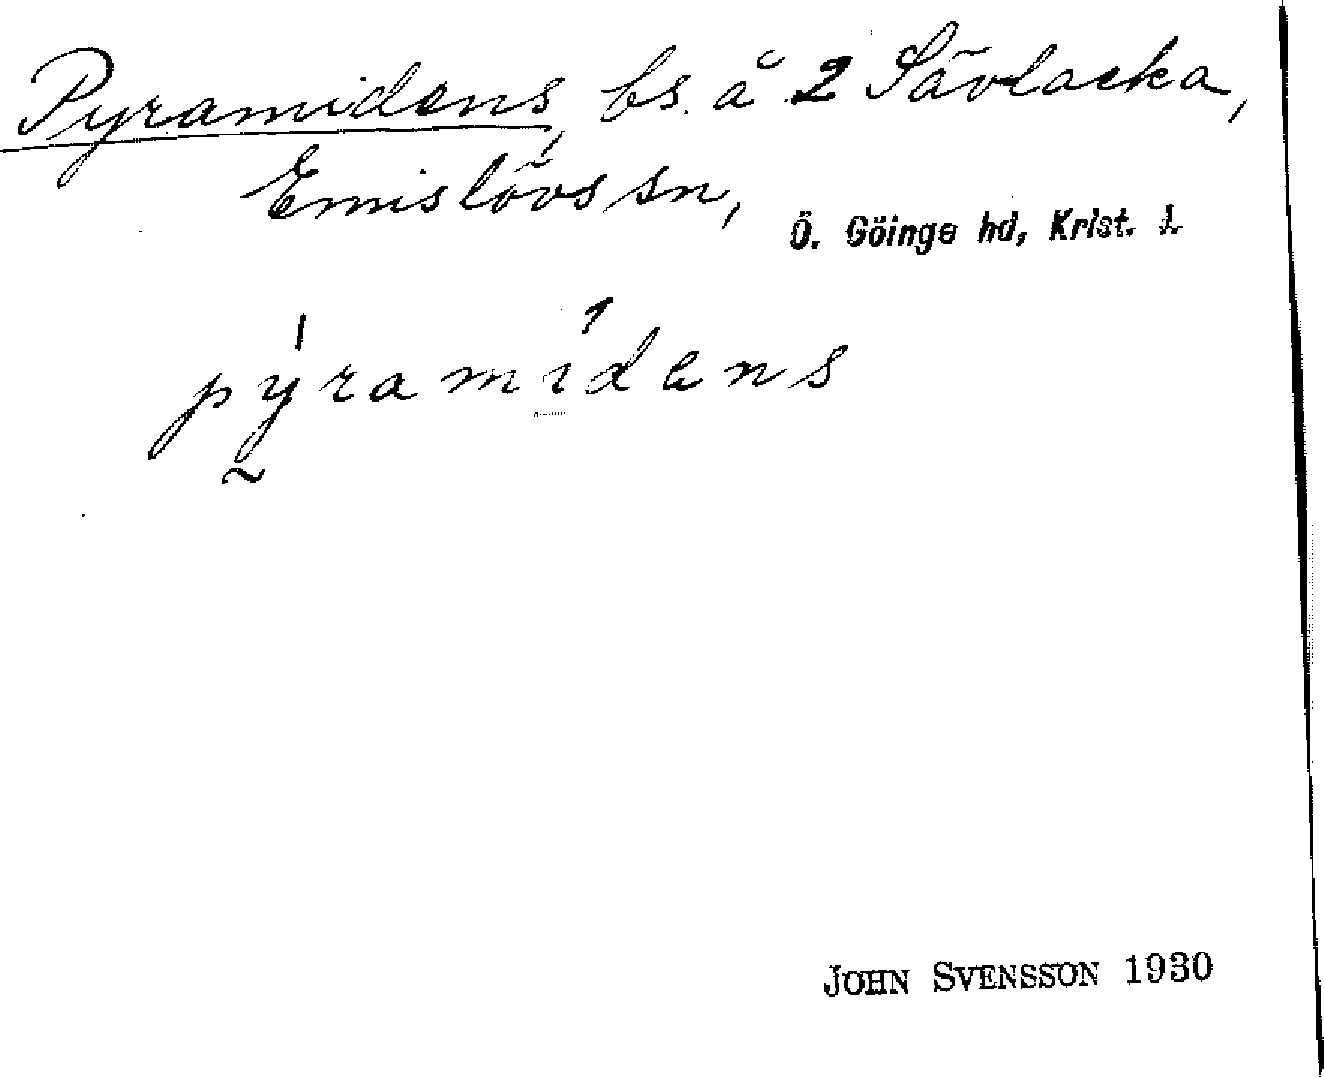 Pyramidens, bs. å 2 Sävlacka,
Emislövs sn,
Ö. Göinge hd, Krist. l.
pýramídens
JOHN SVENSSON 1930